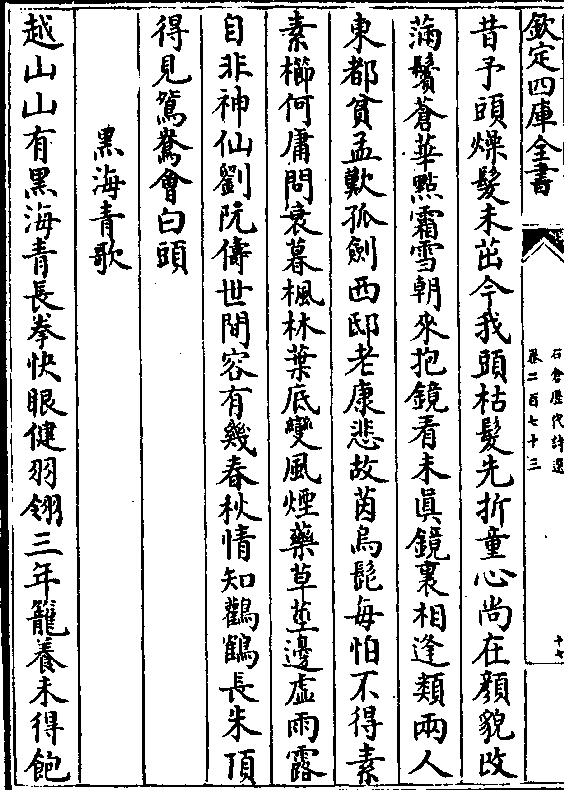 欽定四庫全書
石倉歷代詩選
卷二百七十三
十七
昔予頭燥髮未茁今我頭枯髮先折童心尚在顔貌改
滿鬢蒼華點霜雪朝來抱鏡看未真鏡裏相逢類兩人
東都貧孟歎孤劍西邸老康悲故茵烏髭每怕不得素
素櫛何庸問衰暮楓林葉底變風煙藥草莖邊虛雨露
自非神仙劉阮儔世間容有幾春秋情知鸛鶴長朱頂
得見鴛鴦會白頭
黑海青歌
越山山有黑海青長拳快眼健羽翎三年籠養未得飽